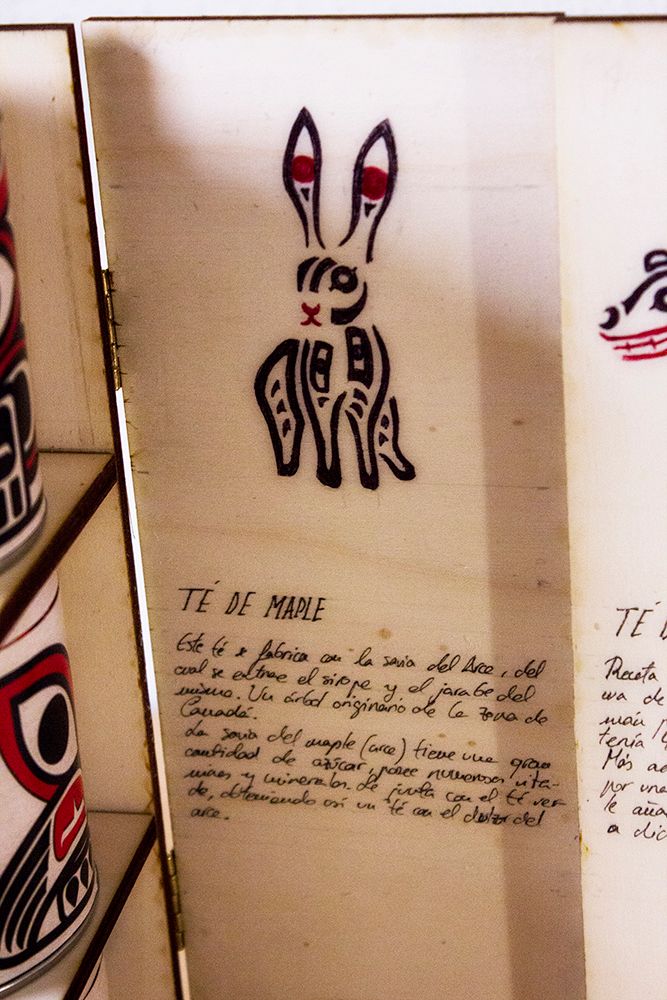 TÉ DE MAPLE
Este té se fabrica con la savia del Arce, del
cual se extrae el sirope y el jarabe del
mismo. Un árbol originario de la zona de
Canadá.
La savia del maple (arce) tiene una gran
cantidad de azúcar, posee numerosas vita-
minas y minerales. Se junta con el té ver-
de, obteniendo así un té con el dulzor del
arce.
TÉ
Receta
uva de
Más
por una
le aña
a dic